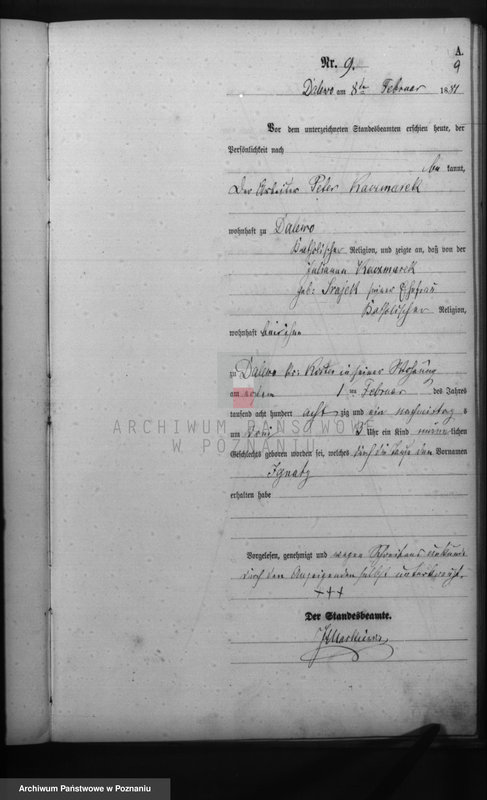 A.
Nr. 9.
9
Dalewo am 8ten Februar 1881
Vor dem unterzeichneten Standesbeamten erschien heute, der
Persönlichkeit nach
be kannt,
Der Arbeiter Peter Kaczmarek
wohnhaft zu Dalewo
katholischer Religion, und zeigte an, daß von der
Julianna Kaczmarek
geb: seiner Ehefrau
katholischer Religion,
wohnhaft bei ihm
zu Dalewo in seiner Wohnung
am ersten 1 ten Februar des Jahres
tausend acht hundert acht zig und ein nachmittag s
um drei 3 Uhr ein Kind männ lichen
Geschlechts geboren worden sei, welches den Vornamen
Ignatz
erhalten habe
Vorgelesen, genehmigt und wegen Schreibens unkunde
durch den Anzeigenden selbst unterkreuzt.
+++
Der Standesbeamte.
ARCHIWUM PAŃSTWOWE
W POZNANIU
Archiwum Państwowe w Poznaniu